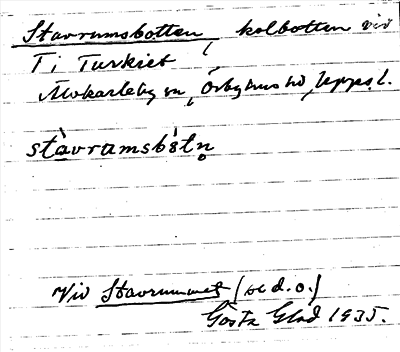 Stavramsbotten, kolbotten vid
Ti Turkiet
Älvkarleby sn, Örbyhus hd, Upps. l.
stàvramsbòtn̥
Vid Stavrummet (se d. o.)
Gösta Glad 1935.